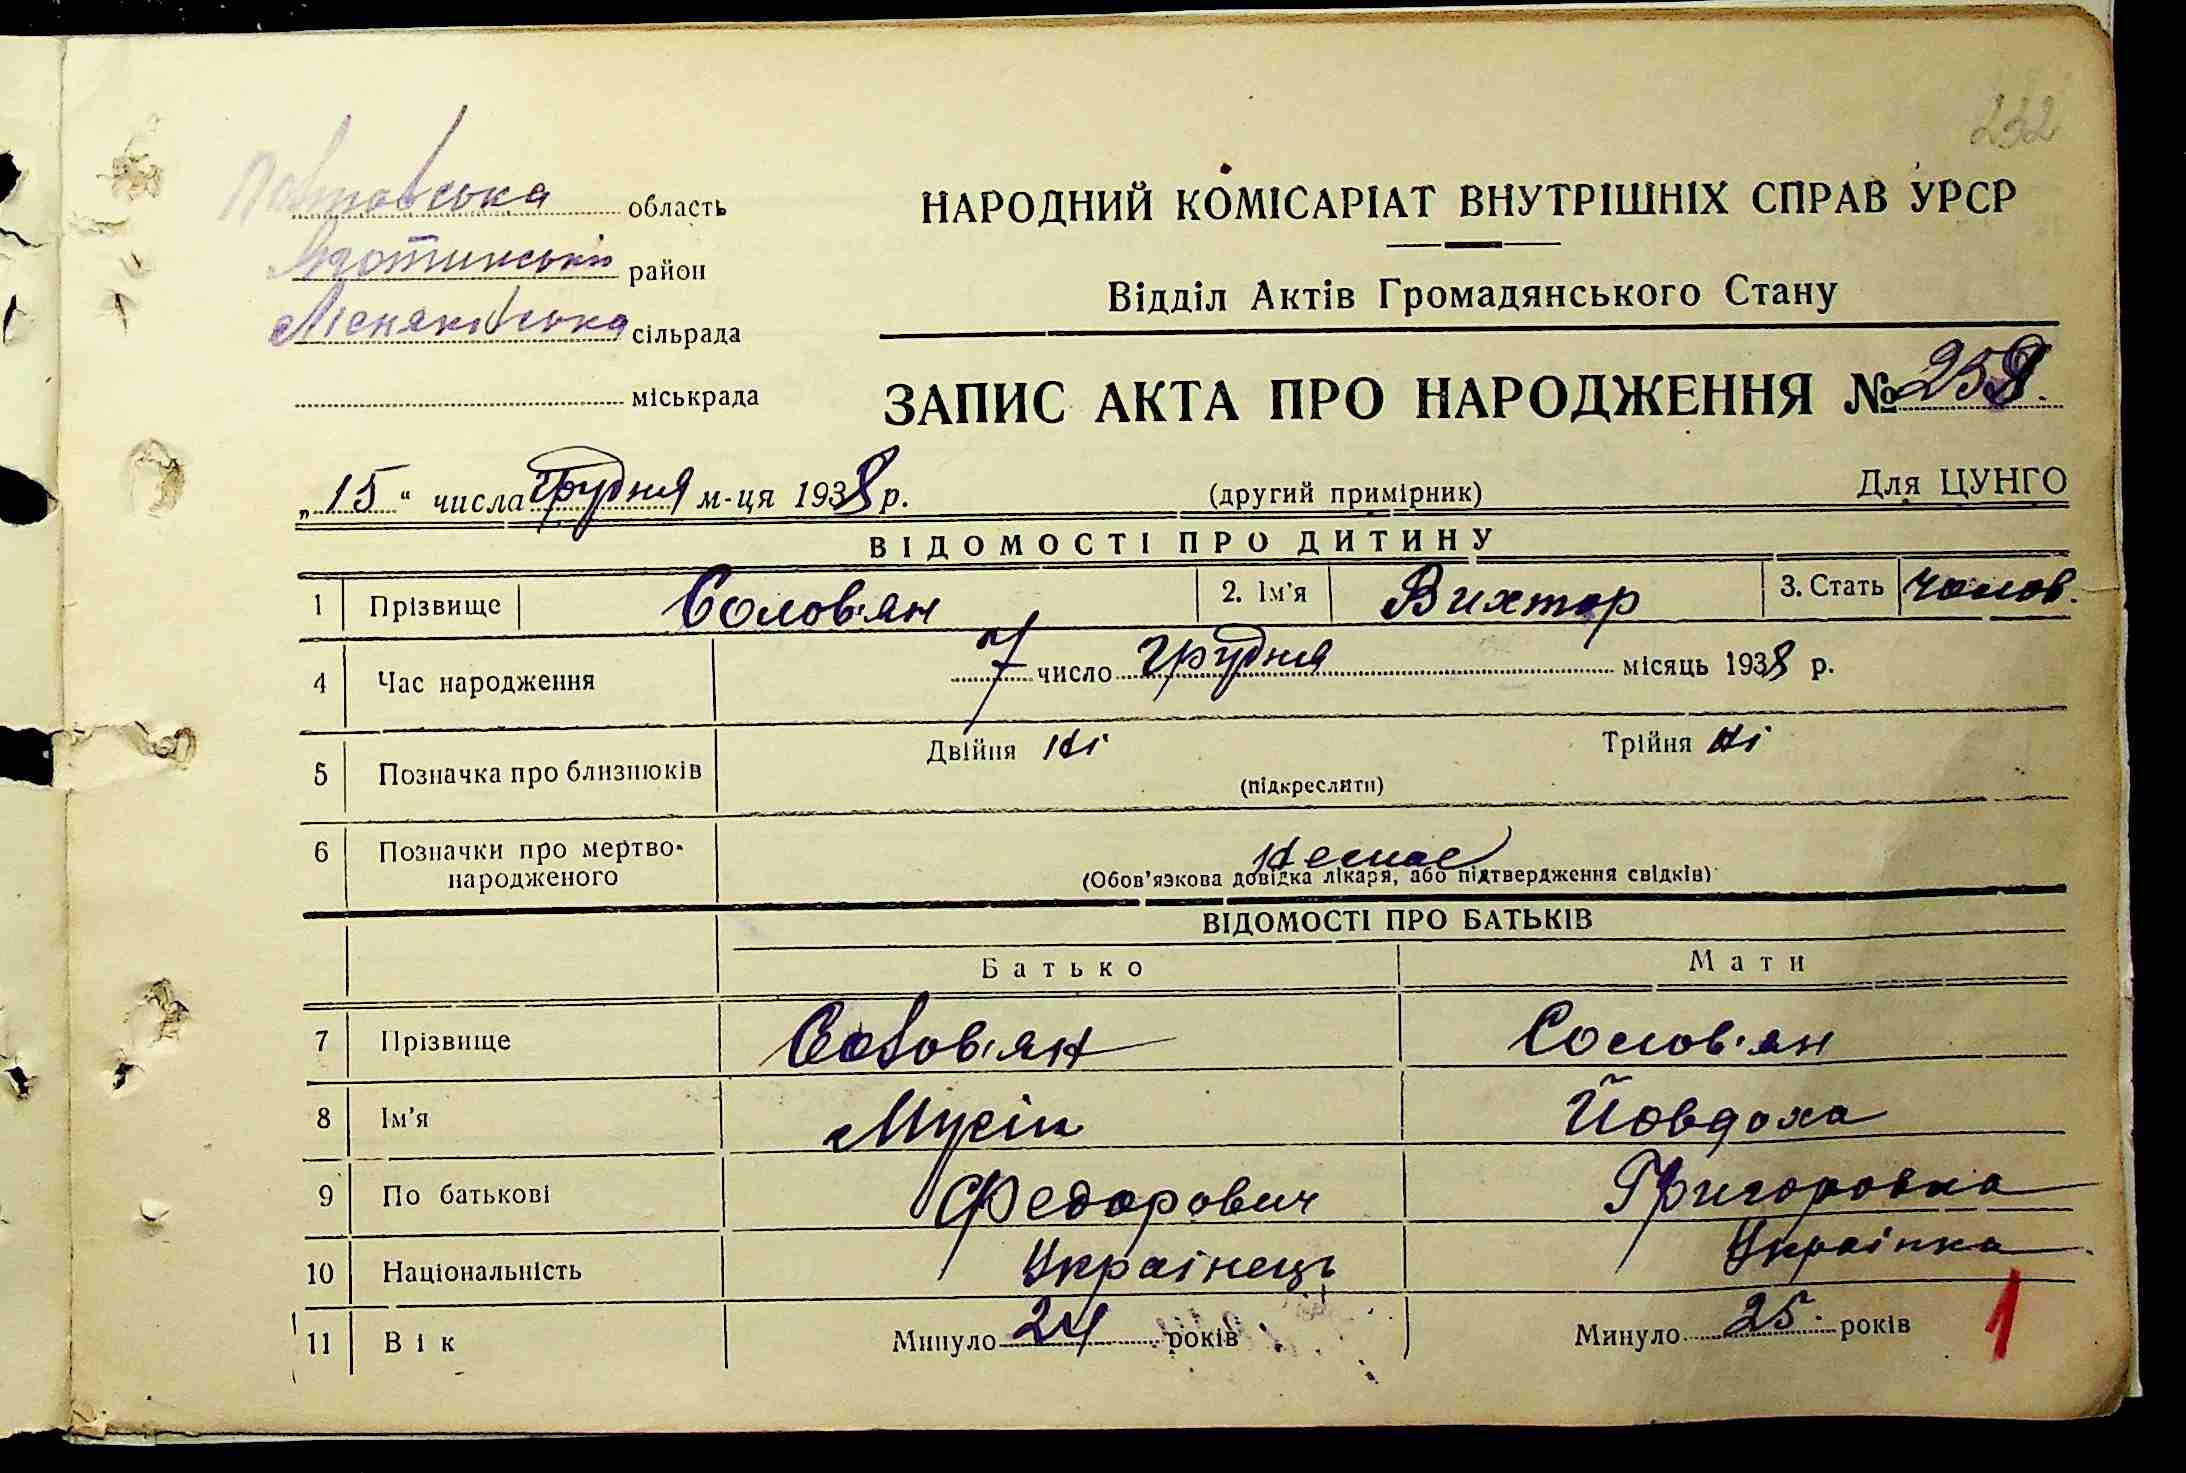 232
Полтовська область
Яготинський район
Лісняківська сільрада
міськрада
НАРОДНИЙ КОМІСАРІАТ ВНУТРІШНІХ СПРАВ УРСР
Відділ Актів Громадянського Стану
ЗАПИС АКТА ПРО НАРОДЖЕННЯ № 258.
„15“ числа грудня м-ця 1938 р.
(другий примірник)
Для ЦУНГО
ВІДОМОСТІ ПРО ДИТИНУ
1 Прізвище Солов'ян 2. Ім'я Вихтор 3. Стать чолов.
4 Час народження 7 число грудня місяць 1938 р.
5 Позначка про близнюків Двійня Ні Трійня Ні
(підкреслити)
6 Позначки про мертво-
народженого
Немає
(Обов'язкова довідка лікаря, або підтвердження свідків)
ВІДОМОСТІ ПРО БАТЬКІВ
Батько Мати
7 Прізвище Солов'ян Солов'ян
8 Ім'я Мусій Йовдоха
9 По батькові Федорович Григоровна
10 Національність Українець Українка
11 Вік Минуло 24 років Минуло 25. років
1